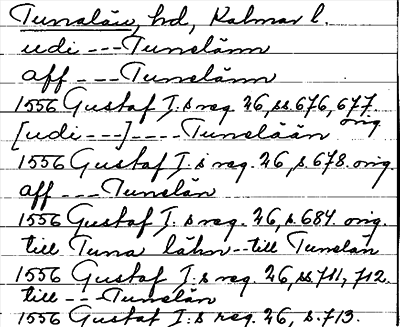 Tunalän, hd, Kalmar l.
udi --- Tunelänn
aff --- Tunelänn
1556 Gustaf I:s reg. 26, ss. 676, 677.
[udi ---] ---- Tunelään orig.
1556 Gustaf I:s reg. 26, s. 678. orig.
aff --- Tunelän
1556 Gustaf I:s reg. 26, s. 684. orig.
till Tuna lähn -- till Tunelän
1556 Gustaf I:s reg. 26, ss. 711, 712.
till -- Tunelän
1556 Gustaf I:s reg. 26, s. 713.